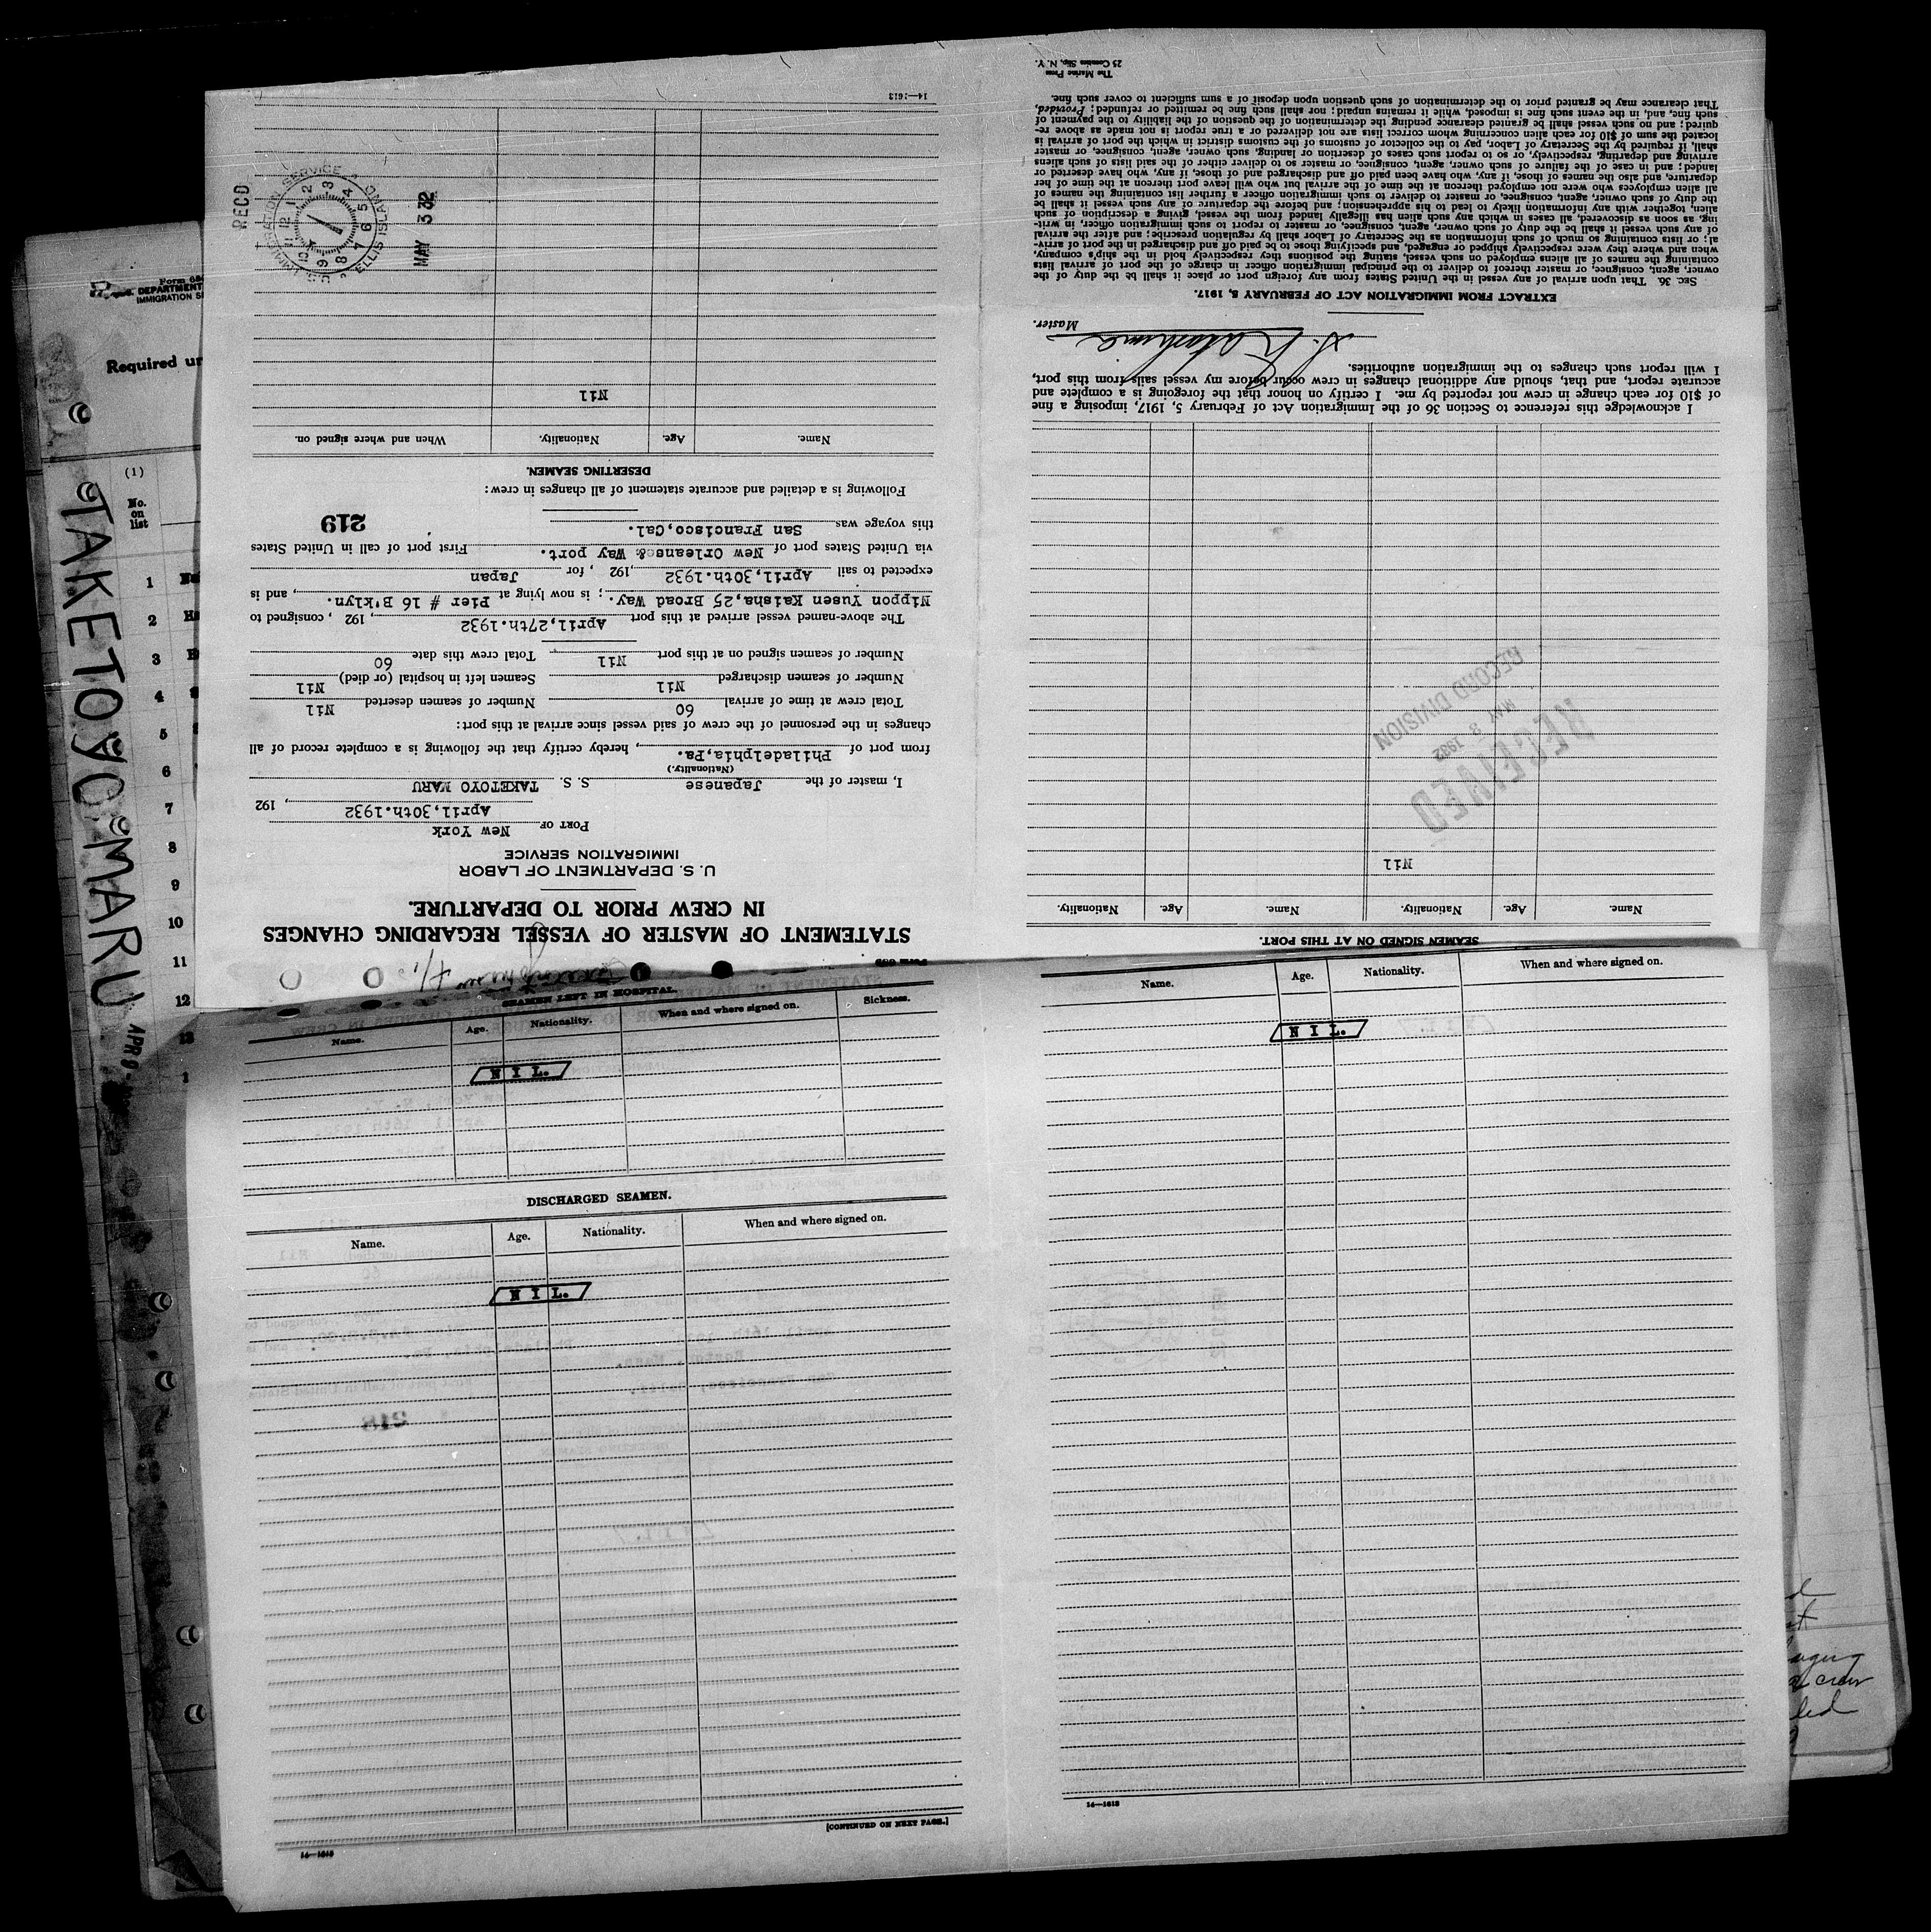 STATEMENT OF MASTER OF VESSEL REGARDING CHANGES
IN CREW PRIOR TO DEPARTURE.
U. S. DEPARTMENT OF LABOR
IMMIGRATION SERVICE
PORT OF New York
April,30th.1932, 192
I, master of the Japanese S. S. TAKETOYO MARU
(Nationality.)
from port of Philadelphia,Pa., hereby certify that the following is a complete record of all
changes in the personnel of the crew of said vessel since arrival at this port:
Total crew at time of arrival 60 Number of seamen deserted Nil
Number of seamen discharged Nil Seamen left in hospital (or died) Nil
Number of seamen signed on at this port Nil Total crew this date 60
The above-named vessel arrived at this port April,27th.1932, 192 , consigned to
Nippon Yusen Kaisha,25 Broad Way.; is now lying at Pier # 16 B'klyn., and is
expected to sail April,30th.1932, 192 , for Japan
via United States port of New Orleans& Way port. First port of call in United States
this voyage was San Francisco,Cal.
219
Following is a detailed and accurate statement of all changes in crew:
DESERTING SEAMEN.
Name. Age. Nationality. When and where signed on.
Nil
RECD
U.S. IMMIGRATION SERVICE
ELLIS ISLAND
1 2 3 4 5 6 7 8 9 10 11 12
MAY 3 32
14—1613
SEAMEN SIGNED ON AT THIS PORT.
Name. Age. Nationality. Name. Age. Nationality.
Nil
RECEIVED
MAY 3 1932
RECORD DIVISION
I acknowledge this reference to Section 36 of the Immigration Act of February 5, 1917, imposing a fine
of $10 for each change in crew not reported by me. I certify on honor that the foregoing is a complete and
accurate report, and that, should any additional changes in crew occur before my vessel sails from this port,
I will report such changes to the immigration authorities.
Master.
EXTRACT FROM IMMIGRATION ACT OF FEBRUARY 5, 1917.
SEC. 36. That upon arrival of any vessel in the United States from any foreign port or place it shall be the duty of the
owner, agent, consignee, or master thereof to deliver to the principal immigration officer in charge of the port of arrival lists
containing the names of all aliens employed on such vessel, stating the positions they respectively hold in the ship's company,
when and where they were respectively shipped or engaged, and specifying those to be paid off and discharged in the port of arriv-
al; or lists containing so much of such information as the Secretary of Labor shall by regulation prescribe; and after the arrival
of any such vessel it shall be the duty of such owner, agent, consignee, or master to report to such immigration officer, in writ-
ing, as soon as discovered, all cases in which any such alien has illegally landed from the vessel, giving a description of such
alien, together with any information likely to lead to his apprehension; and before the departure of any such vessel it shall be
the duty of such owner, agent, consignee, or master to deliver to such immigration officer a further list containing the names of
all alien employees who were not employed thereon at the time of the arrival but who will leave port thereon at the time of her
departure, and also the names of those, if any, who have been paid off and discharged and of those, if any, who have deserted or
landed; and in case of the failure of such owner, agent, consignee, or master so to deliver either of the said lists of such aliens
arriving and departing, respectively, or so to report such cases of desertion or landing, such owner, agent, consignee, or master
shall, if required by the Secretary of Labor, pay to the collector of customs of the customs district in which the port of arrival is
located the sum of $10 for each alien concerning whom correct lists are not delivered or a true report is not made as above re-
quired; and no such vessel shall be granted clearance pending the determination of the question of the liability to the payment of
such fine, and, in the event such fine is imposed, while it remains unpaid; nor shall such fine be remitted or refunded; Provided,
That clearance may be granted prior to the determination of such question upon deposit of a sum sufficient to cover such fine.
The Marine Press
25 Coenties Slip, N. Y.
DEPARTMENT
IMMIGRATION
Required un
(1)
No.
on
list
1
2
3
4
5
6
7
8
9
10
11
12
13
1
TAKETOYO MARU
APR 9
SEAMEN LEFT IN HOSPITAL.
Name. Age. Nationality. When and where signed on. Sickness.
NIL.
DISCHARGED SEAMEN.
Name. Age. Nationality. When and where signed on.
NIL.
218
[CONTINUED ON NEXT PAGE.]
14—1613
Name. Age. Nationality. When and where signed on.
NIL.
14—1613
crew